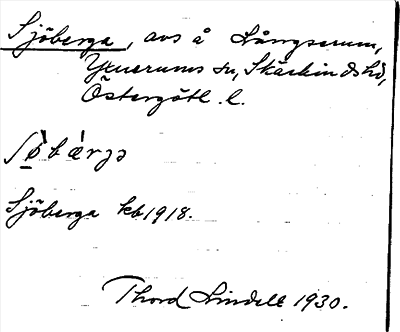 Sjöberga, avs å Långserum,
Yxnerums sn, Skärkinds hd,
Östergötl. l.
ʃö̀bæ̀rgə
Sjöberga kb 1918.
Thord Lindell 1930.